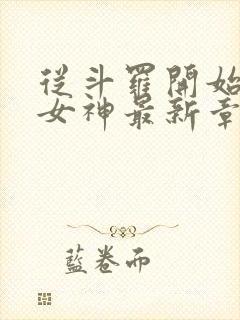 從斗羅開始
女神最新章
藍卷而